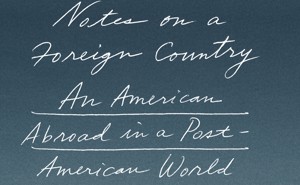 Notes on a
Foreign Country
An American
Abroad in a Post-
American World